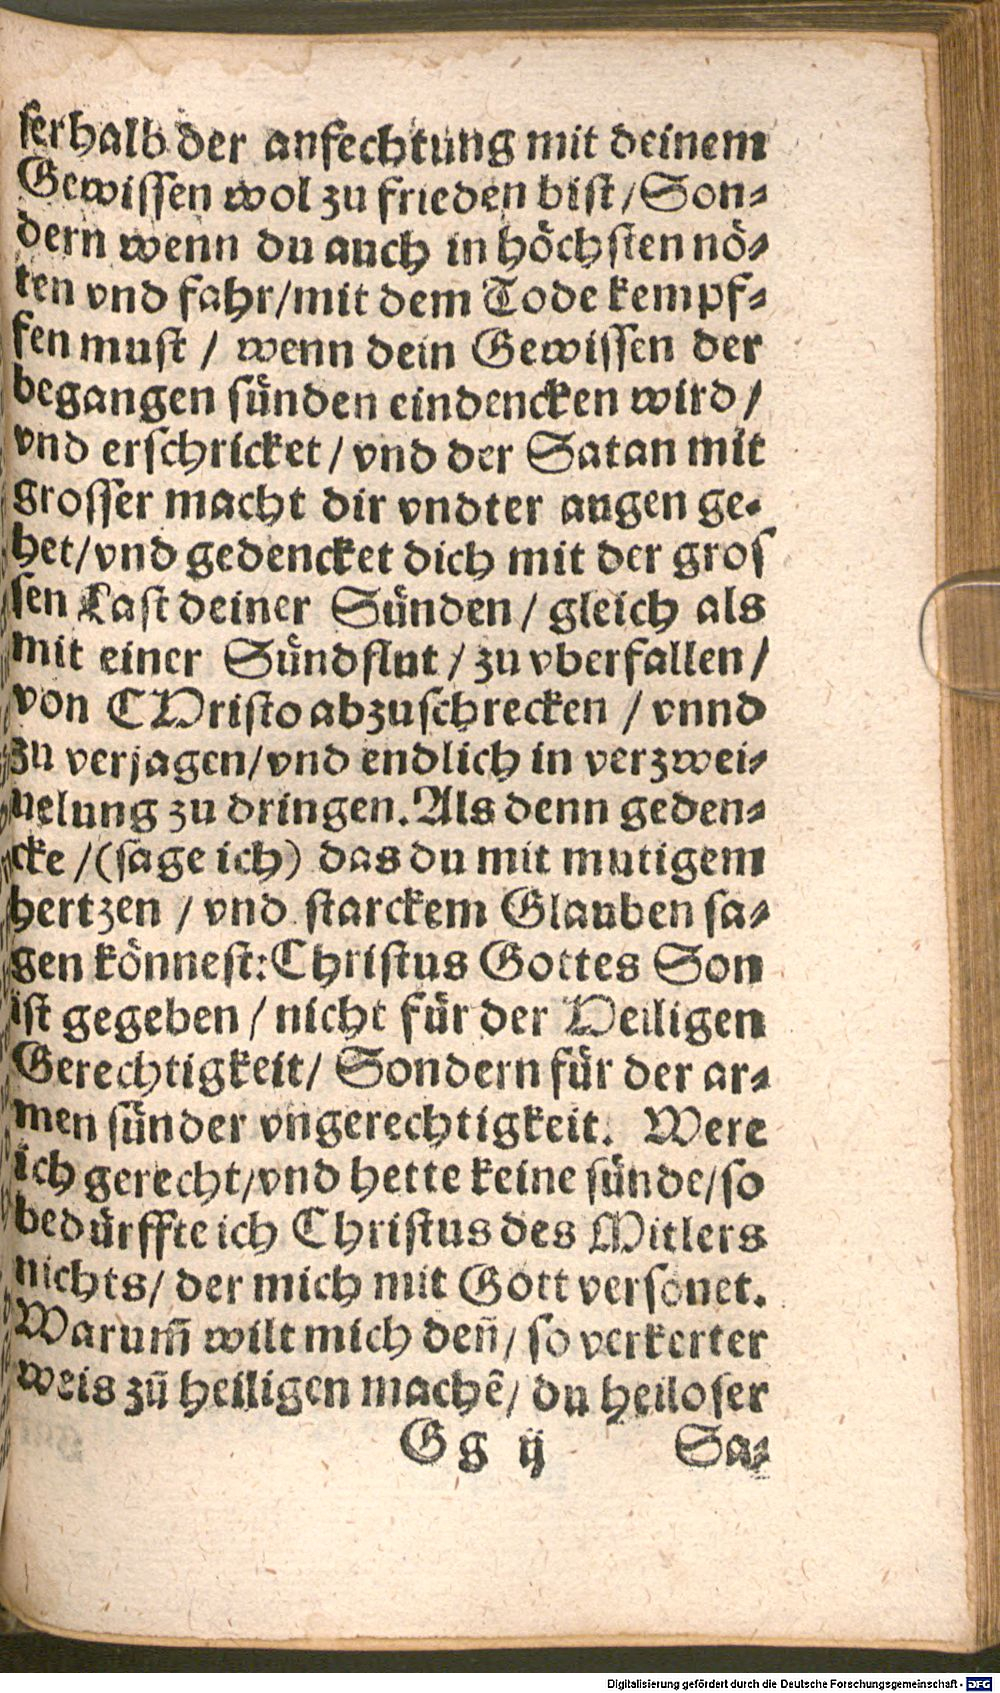 serhalb der anfechtung mit deinem
Gewissen wol zu frieden bist/Son-
dern wenn du auch in höchsten nö-
ten vnd fahr/mit dem Tode kempf-
fen must / wenn dein Gewissen der
begangen sünden eindencken wird /
vnd erschricket / vnd der Satan mit
grosser macht dir vndter augen ge-
het/vnd gedencket dich mit der gros
sen Last deiner Sünden / gleich als
mit einer Sündflut / zu vberfallen /
von CHristo abzuschrecken / vnnd
zu verjagen/vnd endlich in verzwei-
uelung zu dringen. Als denn geden-
cke /(sage ich) das du mit mutigem
hertzen / vnd starckem Glauben sa-
gen könnest: Christus Gottes Son
ist gegeben / nicht für der Heiligen
Gerechtigkeit/ Sondern für der ar-
men sünder vngerechtigkeit. Were
ich gerecht/vnd hette keine sünde/so
bedürffte ich Christus des Mitlers
nichts/ der mich mit Gott versonet.
Warum̃ wilt mich deñ/ so verkerter
weis zũ heiligen machẽ/ du heiloser
G g ij Sa-
Digitalisierung gefördert durch die Deutsche Forschungsgemeinschaft - DFG